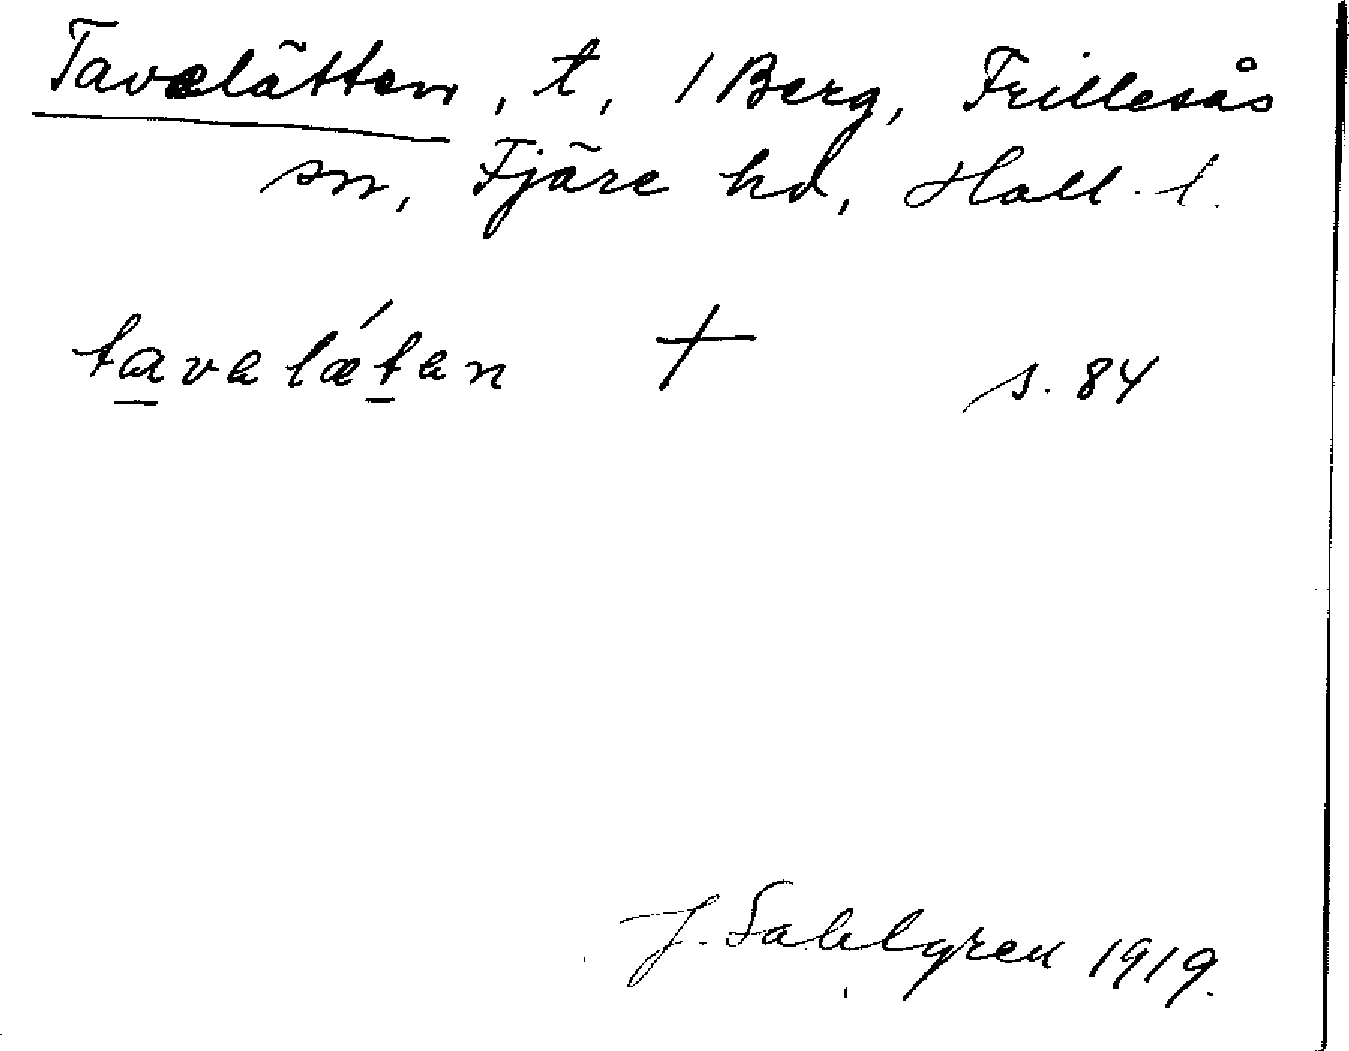 Tavelätten, t, 1 Berg, Frillesås
sn, Fjäre hd, Hall. l.
tavalǽtan † s. 84
J. Sahlgren 1919.